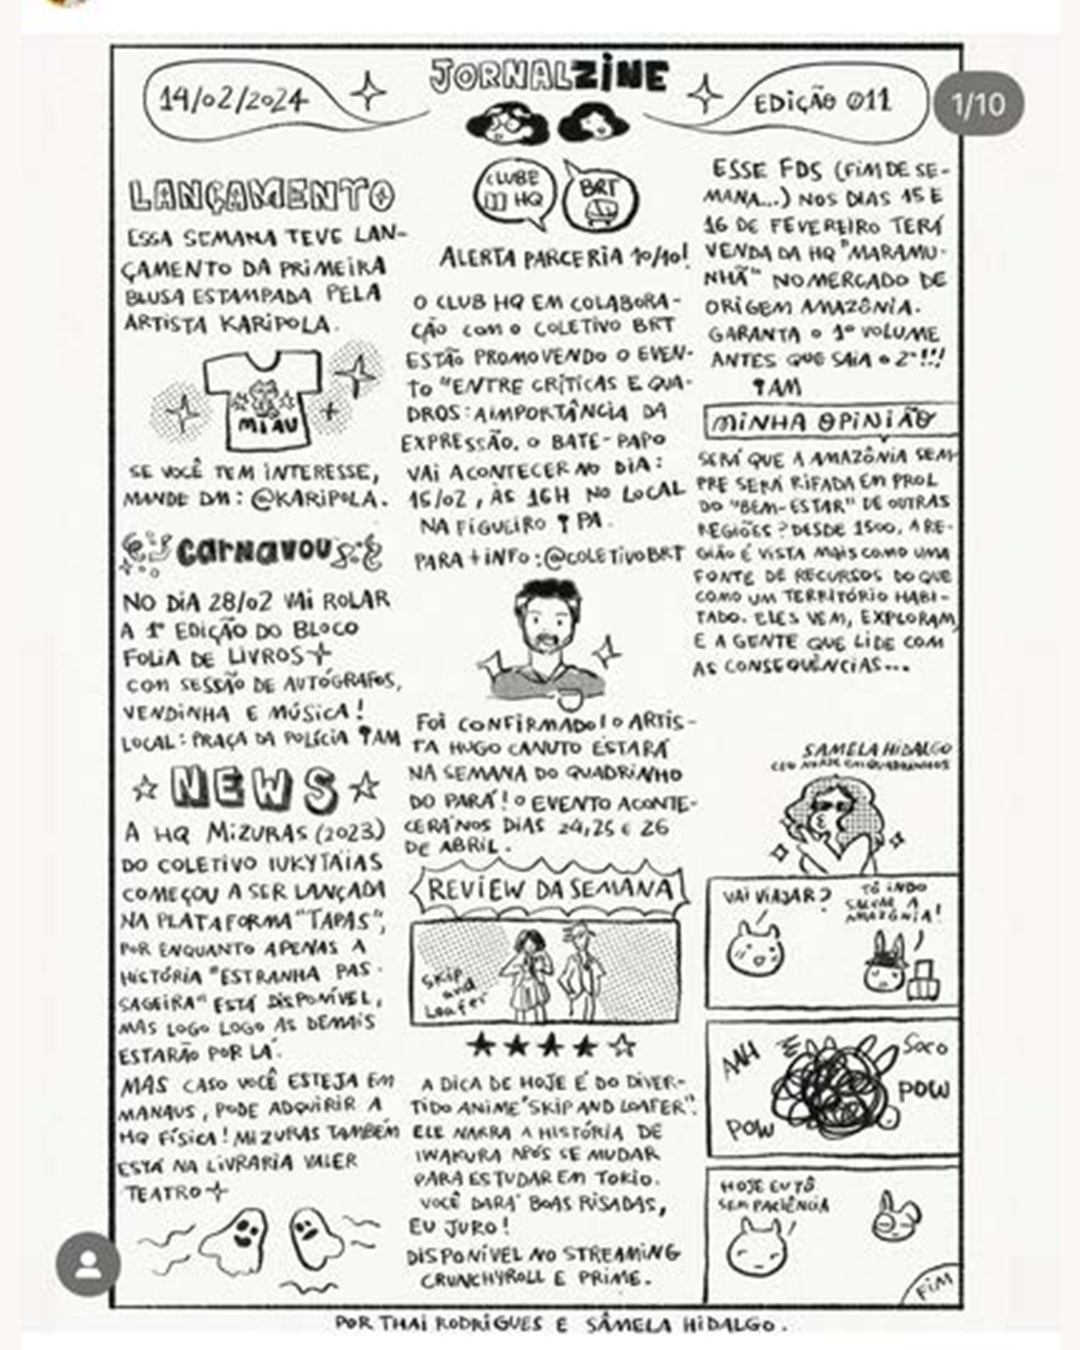 1/10
14/02/2024
JORNALZINE
EDIÇÃO 011
LANÇAMENTO
ESSA SEMANA TEVE LAN-
ÇAMENTO DA PRIMEIRA
BLUSA ESTAMPADA PELA
ARTISTA KARIPOLA.
MIAU
SE VOCÊ TEM INTERESSE,
MANDE DM: @KARIPOLA.
CARNAVOU
NO DIA 28/02 VAI ROLAR
A 1ª EDIÇÃO DO BLOCO
FOLIA DE LIVROS
COM SESSÃO DE AUTÓGRAFOS,
VENDINHA E MÚSICA!
LOCAL: PRAÇA DA POLÍCIA AM
NEWS
A HQ MIZURAS (2023)
DO COLETIVO IUKYTAIAS
COMEÇOU A SER LANÇADA
NA PLATAFORMA "TAPAS",
POR ENQUANTO APENAS A
HISTÓRIA "ESTRANHA PAS-
SAGEIRA" ESTÁ DISPONÍVEL,
MAS LOGO LOGO AS DEMAIS
ESTARÃO POR LÁ.
MAS CASO VOCÊ ESTEJA EM
MANAUS, PODE ADQUIRIR A
HQ FÍSICA! MIZURAS TAMBÉM
ESTÁ NA LIVRARIA VALER
TEATRO
CLUBE
HQ
BRT
ALERTA PARCERIA 10/10!
O CLUB HQ EM COLABORA-
ÇÃO COM O COLETIVO BRT
ESTÃO PROMOVENDO O EVEN-
TO "ENTRE CRÍTICAS E QUA-
DROS: A IMPORTÂNCIA DA
EXPRESSÃO. O BATE-PAPO
VAI ACONTECER NO DIA:
15/02, ÀS 16H NO LOCAL
NA FIGUEIRO PA.
PARA + INFO: @COLETIVOBRT
FOI CONFIRMADO! O ARTIS-
TA HUGO CANUTO ESTARÁ
NA SEMANA DO QUADRINHO
DO PARÁ! O EVENTO ACONTE-
CERÁ NOS DIAS 24, 25 E 26
DE ABRIL.
REVIEW DA SEMANA
SKIP
AND
LOAFER
A DICA DE HOJE É DO DIVER-
TIDO ANIME "SKIP AND LOAFER".
ELE NARRA A HISTÓRIA DE
IWAKURA APÓS SE MUDAR
PARA ESTUDAR EM TOKIO.
VOCÊ DARÁ BOAS RISADAS,
EU JURO!
DISPONÍVEL NO STREAMING
CRUNCHYROLL E PRIME.
ESSE FDS (FIM DE SE-
MANA...) NOS DIAS 15 E
16 DE FEVEREIRO TERÁ
VENDA DA HQ "MARAMU-
NHÃ" NO MERCADO DE
ORIGEM AMAZÔNIA.
GARANTA O 1º VOLUME
ANTES QUE SAIA O 2º!!!
AM
MINHA OPINIÃO
SERÁ QUE A AMAZÔNIA SEM-
PRE SERÁ RIFADA EM PROL
DO "BEM-ESTAR" DE OUTRAS
REGIÕES? DESDE 1500, A RE-
GIÃO É VISTA MAIS COMO UMA
FONTE DE RECURSOS DO QUE
COMO UM TERRITÓRIO HABI-
TADO. ELES VEM, EXPLORAM,
E A GENTE QUE LIDE COM
AS CONSEQUÊNCIAS...
SAMELA HIDALGO
CEO NORTE EM QUADRINHOS
VAI VIAJAR?
TÔ INDO
SALVAR A
AMAZÔNIA!
AAH
SOCO
POW
POW
HOJE EU TÔ
SEM PACIÊNCIA
FIM
POR THAI RODRIGUES E SÂMELA HIDALGO.